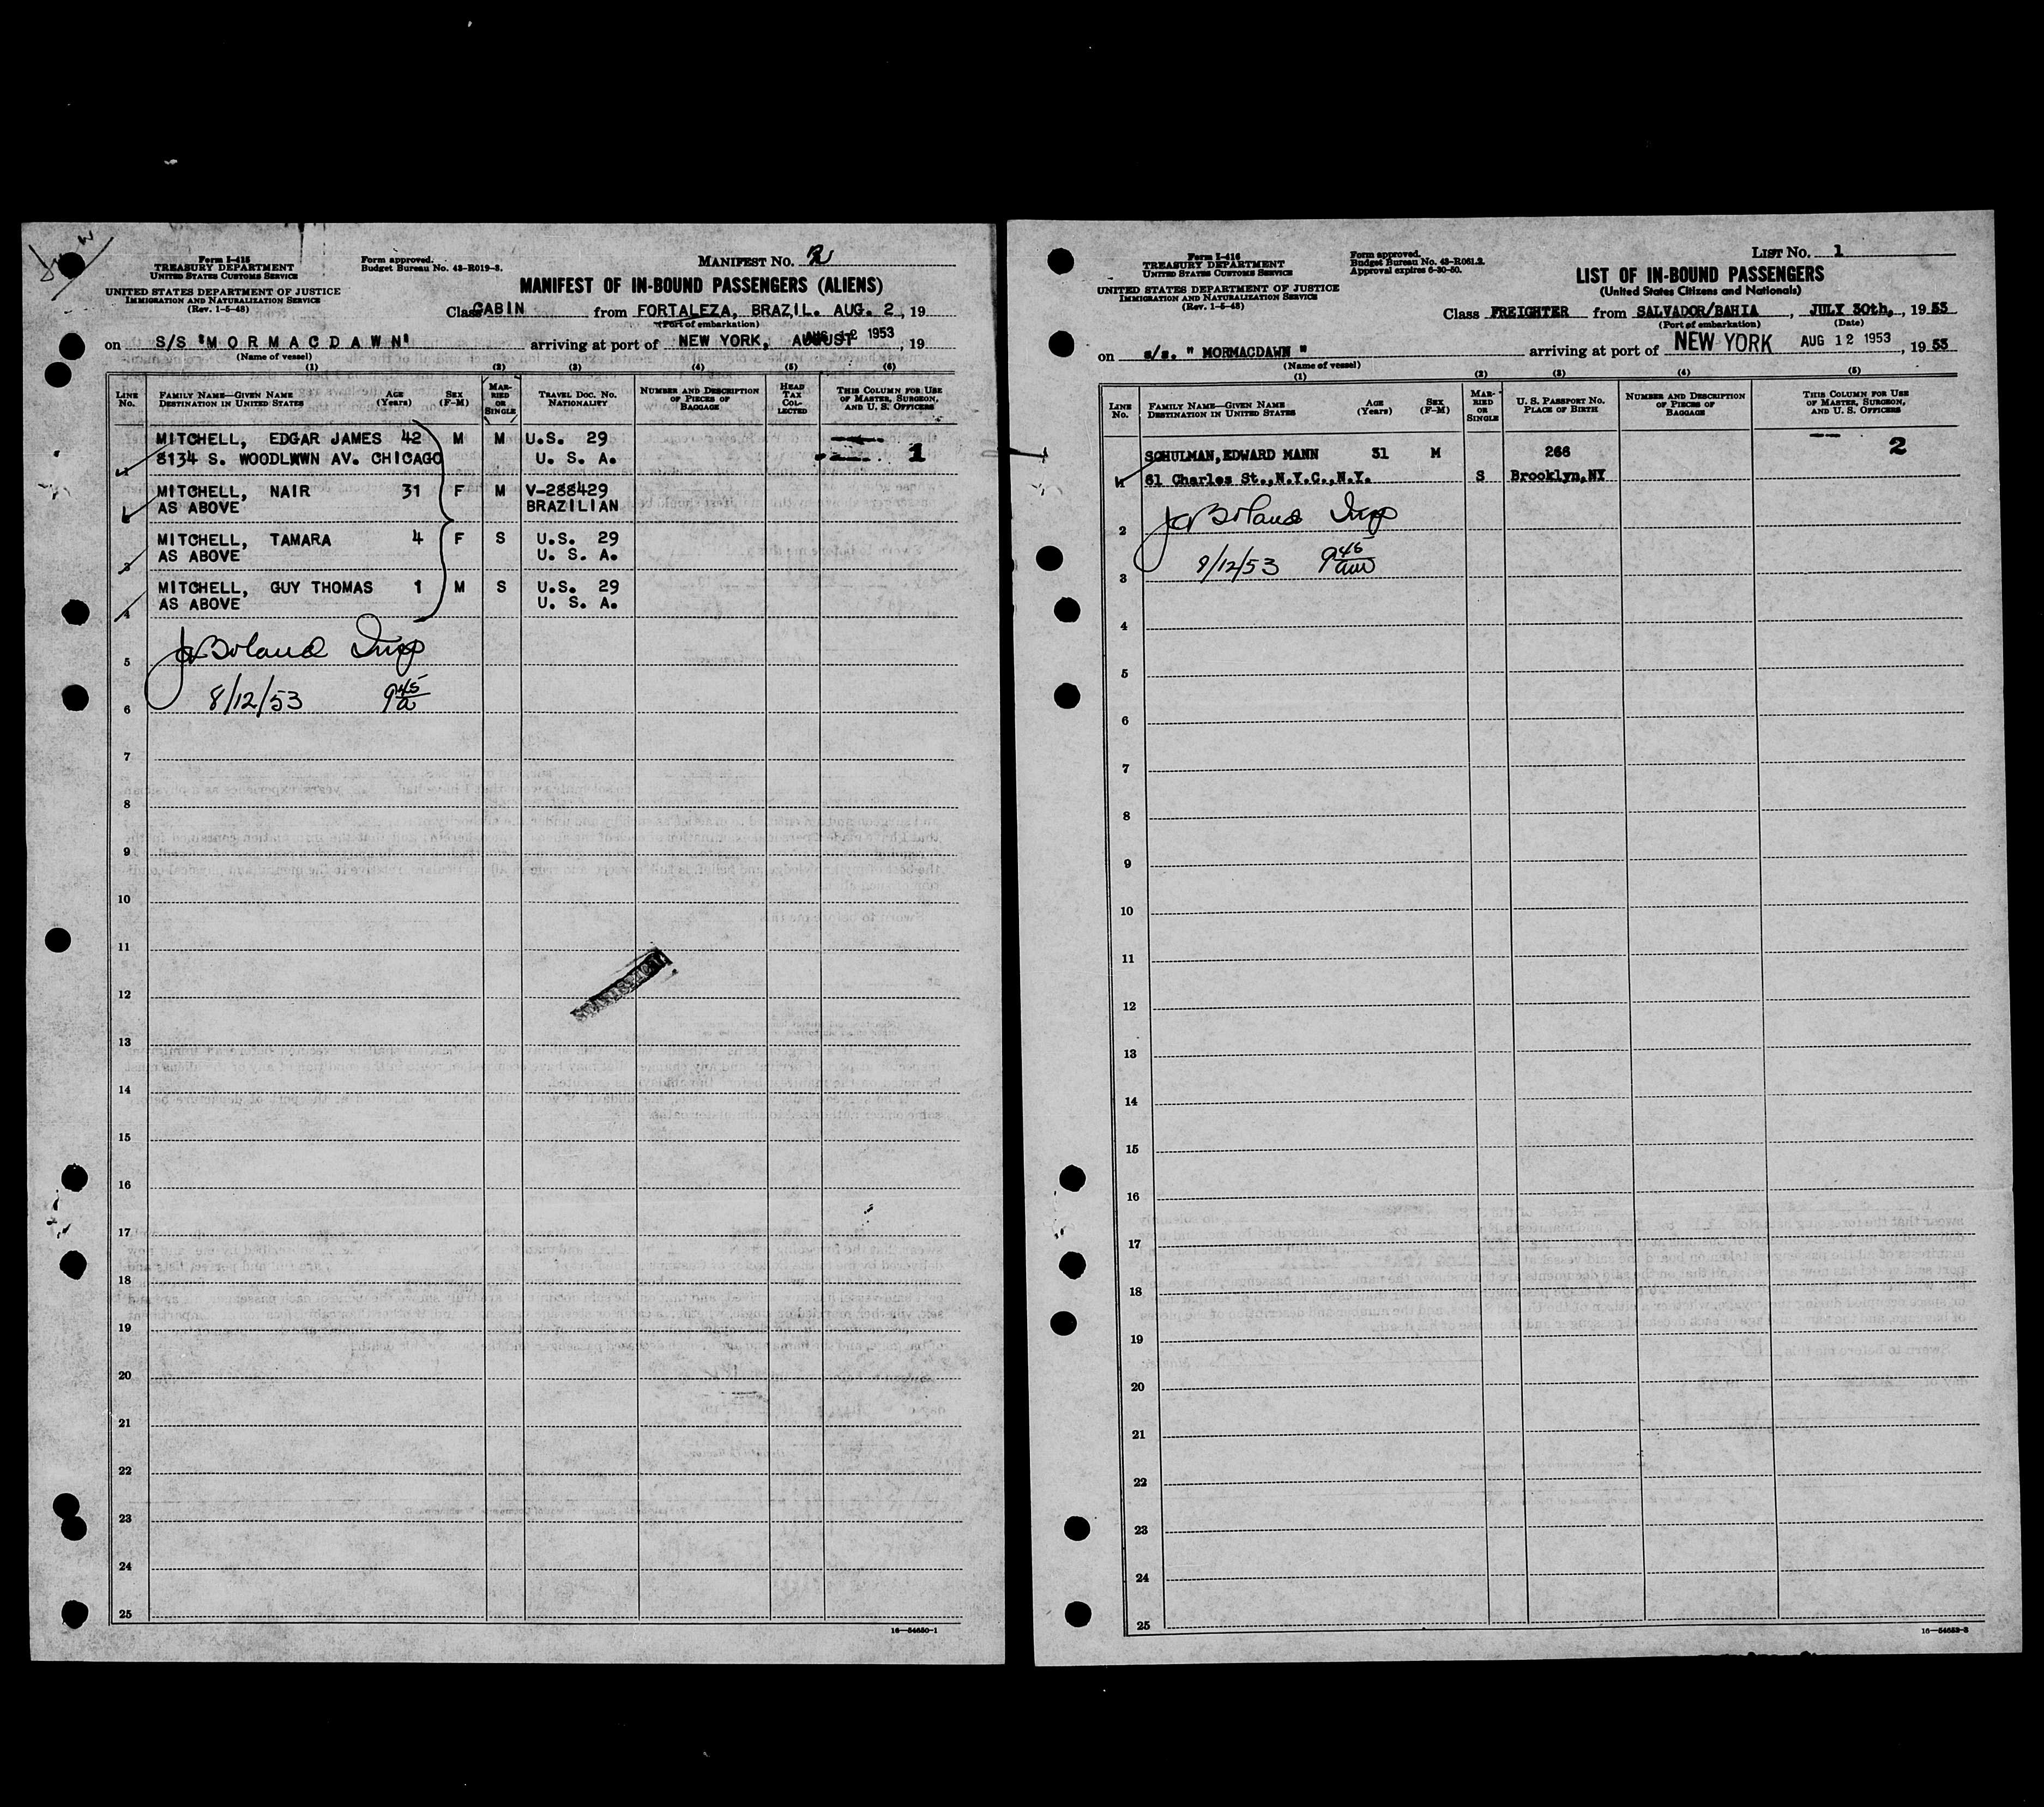 Form I-415
TREASURY DEPARTMENT
UNITED STATES CUSTOMS SERVICE
UNITED STATES DEPARTMENT OF JUSTICE
IMMIGRATION AND NATURALIZATION SERVICE
(Rev. 1-5-48)
Form approved.
Budget Bureau No. 43-R019-3.
MANIFEST NO.
MANIFEST OF IN-BOUND PASSENGERS (ALIENS)
Class CABIN from FORTALEZA, BRAZIL. AUG. 2, 19
(Port of embarkation)
on S/S "MORMACDAWN" arriving at port of NEW YORK, AUGUST AUG 12 1953, 19
(Name of vessel)
(1) (2) (3) (4) (5) (6)
LINE No. FAMILY NAME—GIVEN NAME DESTINATION IN UNITED STATES AGE (Years) SEX (F-M) MARRIED OR SINGLE TRAVEL DOC. NO. NATIONALITY NUMBER AND DESCRIPTION OF PIECES OF BAGGAGE HEAD TAX COLLECTED THIS COLUMN FOR USE OF MASTER, SURGEON, AND U. S. OFFICERS
MITCHELL, EDGAR JAMES 42 M M U.S. 29
1 8134 S. WOODLAWN AV. CHICAGO U. S. A. 1
MITCHELL, NAIR 31 F M V-288429
AS ABOVE BRAZILIAN
MITCHELL, TAMARA 4 F S U.S. 29
3 AS ABOVE U. S. A.
MITCHELL, GUY THOMAS 1 M S U.S. 29
4 AS ABOVE U. S. A.
5 Boland Insp
6 8/12/53 9 45 a
7
8
9
10
11
12
13
14
15
16
17
18
19
20
21
22
23
24
25
16—54650-1
Form I-416
TREASURY DEPARTMENT
UNITED STATES CUSTOMS SERVICE
UNITED STATES DEPARTMENT OF JUSTICE
IMMIGRATION AND NATURALIZATION SERVICE
(Rev. 1-5-48)
Form approved.
Budget Bureau No. 43-R061.2.
Approval expires 6-30-50.
LIST No. 1
LIST OF IN-BOUND PASSENGERS
(United States Citizens and Nationals)
Class FREIGHTER from SALVADOR/BAHIA, JULY 30th, 1953
(Port of embarkation) (Date)
on s/s. " MORMACDAWN " arriving at port of NEW YORK AUG 12 1953, 1953
(Name of vessel)
(1) (2) (3) (4) (5)
LINE No. FAMILY NAME—GIVEN NAME DESTINATION IN UNITED STATES AGE (Years) SEX (F-M) MARRIED OR SINGLE U. S. PASSPORT NO. PLACE OF BIRTH NUMBER AND DESCRIPTION OF PIECES OF BAGGAGE THIS COLUMN FOR USE OF MASTER, SURGEON, AND U. S. OFFICERS
SCHULMAN, EDWARD MANN 31 M 266 2
1 61 Charles St.,N.Y.C.,N.Y. S Brooklyn,NY
2 Boland Insp
3 8/12/53 9 45 am
4
5
6
7
8
9
10
11
12
13
14
15
16
17
18
19
20
21
22
23
24
25
16—54653-3